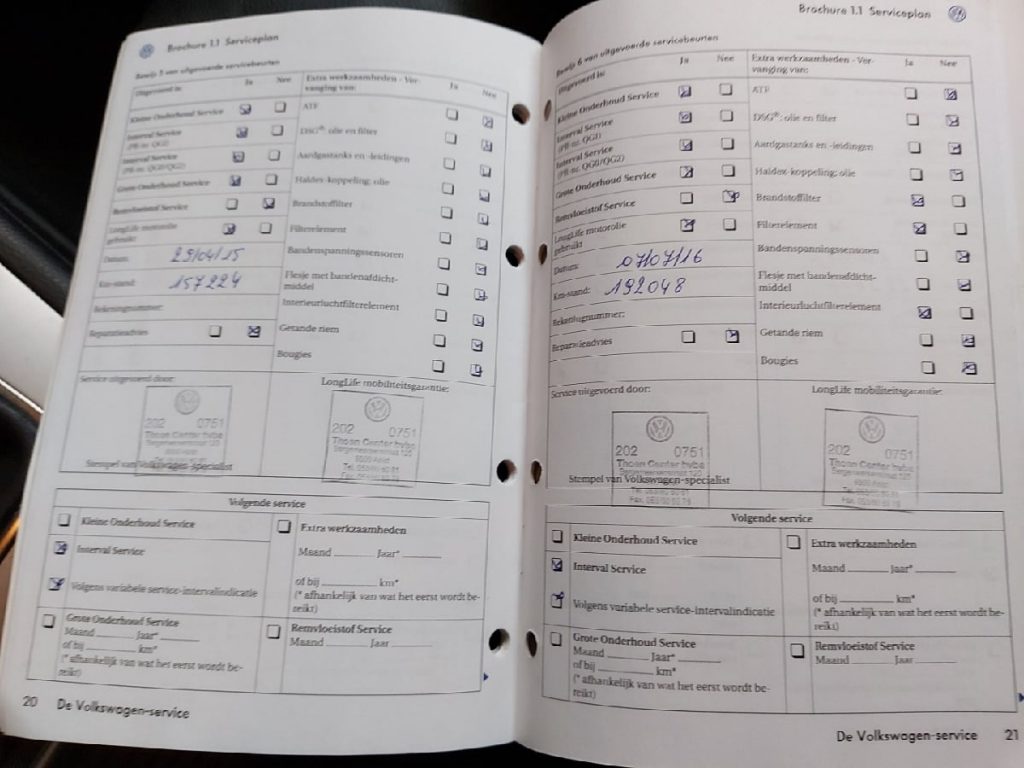 Brochure 1.1 Serviceplan
Bewijs 5 van uitgevoerde servicebeurten
Uitgevoerd is:
Ja
Nee
Kleine Onderhoud Service
Interval Service
(PR-nr. QG1)
Interval Service
(PR-nr. QG0/QG2)
Grote Onderhoud Service
Remvloeistof Service
LongLife motorolie
gebruikt
Datum: 29/04/15
Km-stand: 157224
Rekeningnummer:
Reparatieadvies
Extra werkzaamheden - Ver-
vanging van:
Ja
Nee
ATF
DSG®: olie en filter
Aardgastanks en -leidingen
Haldex-koppeling: olie
Brandstoffilter
Filterelement
Bandenspanningssensoren
Flesje met bandenafdicht-
middel
Interieurluchtfilterelement
Getande riem
Bougies
Service uitgevoerd door:
202 0751
Thoen Center bvba
Stempel van Volkswagen-specialist
LongLife mobiliteitsgarantie:
202 0751
Thoen Center bvba
Volgende service
Kleine Onderhoud Service
Interval Service
Volgens variabele service-intervalindicatie
Grote Onderhoud Service
Maand Jaar*
of bij km*
(* afhankelijk van wat het eerst wordt be-
reikt)
Extra werkzaamheden
Maand Jaar*
of bij km*
(* afhankelijk van wat het eerst wordt be-
reikt)
Remvloeistof Service
Maand Jaar
20 De Volkswagen-service
Brochure 1.1 Serviceplan
Bewijs 6 van uitgevoerde servicebeurten
Uitgevoerd is:
Ja
Nee
Kleine Onderhoud Service
Interval Service
(PR-nr. QG1)
Interval Service
(PR-nr. QG0/QG2)
Grote Onderhoud Service
Remvloeistof Service
LongLife motorolie
gebruikt
Datum: 07/07/16
Km-stand: 192048
Rekeningnummer:
Reparatieadvies
Extra werkzaamheden - Ver-
vanging van:
Ja
Nee
ATF
DSG®: olie en filter
Aardgastanks en -leidingen
Haldex-koppeling: olie
Brandstoffilter
Filterelement
Bandenspanningssensoren
Flesje met bandenafdicht-
middel
Interieurluchtfilterelement
Getande riem
Bougies
Service uitgevoerd door:
202 0751
Thoen Center bvba
Stempel van Volkswagen-specialist
LongLife mobiliteitsgarantie:
202 0751
Thoen Center bvba
Volgende service
Kleine Onderhoud Service
Interval Service
Volgens variabele service-intervalindicatie
Grote Onderhoud Service
Maand Jaar*
of bij km*
(* afhankelijk van wat het eerst wordt be-
reikt)
Extra werkzaamheden
Maand Jaar*
of bij km*
(* afhankelijk van wat het eerst wordt be-
reikt)
Remvloeistof Service
Maand Jaar
De Volkswagen-service 21